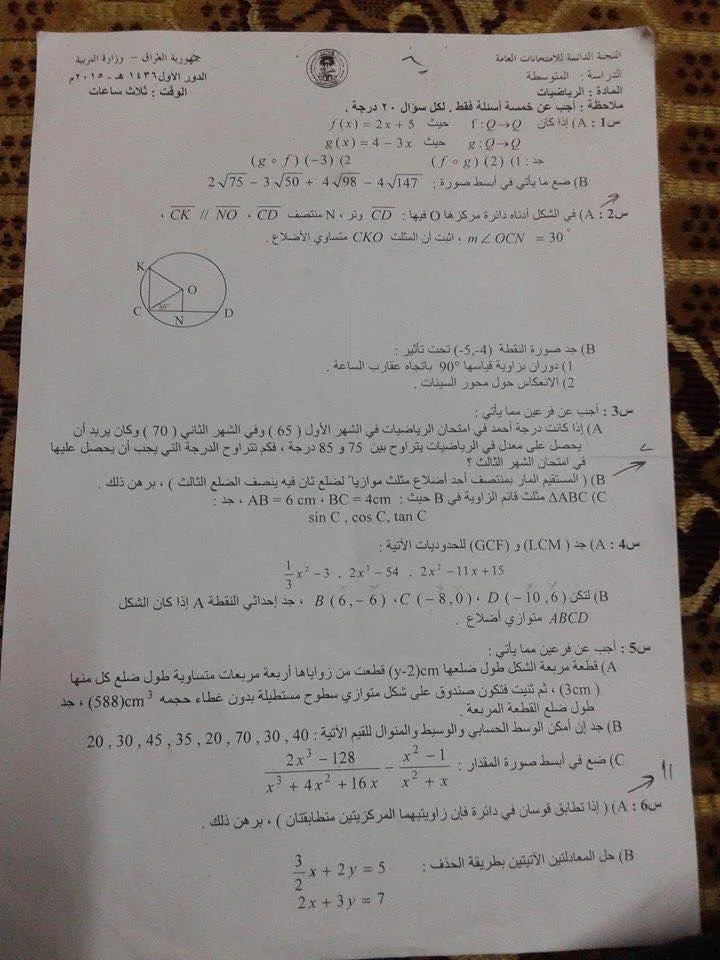 اللجنة الدائمة للامتحانات العامة
الدراسة : المتوسطة
المادة : الرياضيات
جمهورية العراق – وزارة التربية
الدور الأول ١٤٣٦ هـ - ٢٠١٥م
الوقت : ثلاث ساعات
ملاحظة : أجب عن خمسة أسئلة فقط . لكل سؤال ٢٠ درجة .
س1 : A) إذا كان f : Q → Q حيث f(x) = 2x + 5
g : Q → Q حيث g(x) = 4 − 3x
جد : 1) (f ∘ g) (2) 2) (g ∘ f) (−3)
B) ضع ما يأتي في أبسط صورة : 2√75 − 3√50 + 4√98 − 4√147
س2 : A) في الشكل أدناه دائرة مركزها O فيها : CD وتر ، N منتصف CD ، CK // NO ،
m∠OCN = 30° ، اثبت أن المثلث CKO متساوي الأضلاع .
K
O
C 30° D
N
B) جد صورة النقطة (-5,-4) تحت تأثير :
1) دوران بزاوية قياسها 90° باتجاه عقارب الساعة .
2) الانعكاس حول محور السينات .
س3 : أجب عن فرعين مما يأتي :
A) إذا كانت درجة أحمد في امتحان الرياضيات في الشهر الأول ( 65 ) وفي الشهر الثاني ( 70 ) وكان يريد أن
يحصل على معدل في الرياضيات يتراوح بين 75 و 85 درجة ، فكم تتراوح الدرجة التي يجب أن يحصل عليها
في امتحان الشهر الثالث ؟
B) ( المستقيم المار بمنتصف أحد أضلاع مثلث موازياً لضلع ثان فيه ينصف الضلع الثالث ) ، برهن ذلك .
C) ΔABC مثلث قائم الزاوية في B حيث : AB = 6 cm ، BC = 4cm ، جد :
sin C , cos C, tan C
س4 : A) جد ( LCM) و (GCF) للحدوديات الآتية :
1/3 x² − 3 , 2x³ − 54 , 2x² − 11x + 15
B) لتكن D (−10,6) ، C (−8,0) ، B (6,−6) ، جد إحداثي النقطة A إذا كان الشكل
ABCD متوازي أضلاع .
س5 : أجب عن فرعين مما يأتي :
A) قطعة مربعة الشكل طول ضلعها (y-2)cm قطعت من زواياها أربعة مربعات متساوية طول ضلع كل منها
(3cm ) ، ثم ثنيت فتكون صندوق على شكل متوازي سطوح مستطيلة بدون غطاء حجمه (588)cm³ ، جد
طول ضلع القطعة المربعة .
B) جد إن أمكن الوسط الحسابي والوسيط والمنوال للقيم الآتية : 20 , 30 , 45 , 35 , 20 , 70 , 30 , 40
C) ضع في أبسط صورة المقدار : (2x³ − 128)/(x³ + 4x² + 16x) − (x² − 1)/(x² + x)
س6 : A) ( إذا تطابق قوسان في دائرة فإن زاويتيهما المركزيتين متطابقتان ) ، برهن ذلك .
B) حل المعادلتين الآتيتين بطريقة الحذف : 3/2 x + 2y = 5
2x + 3y = 7